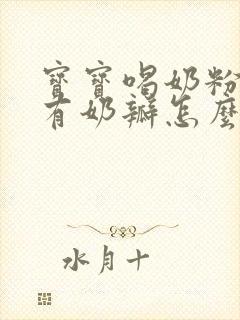 寶寶喝奶粉
有奶瓣怎麼
水月十